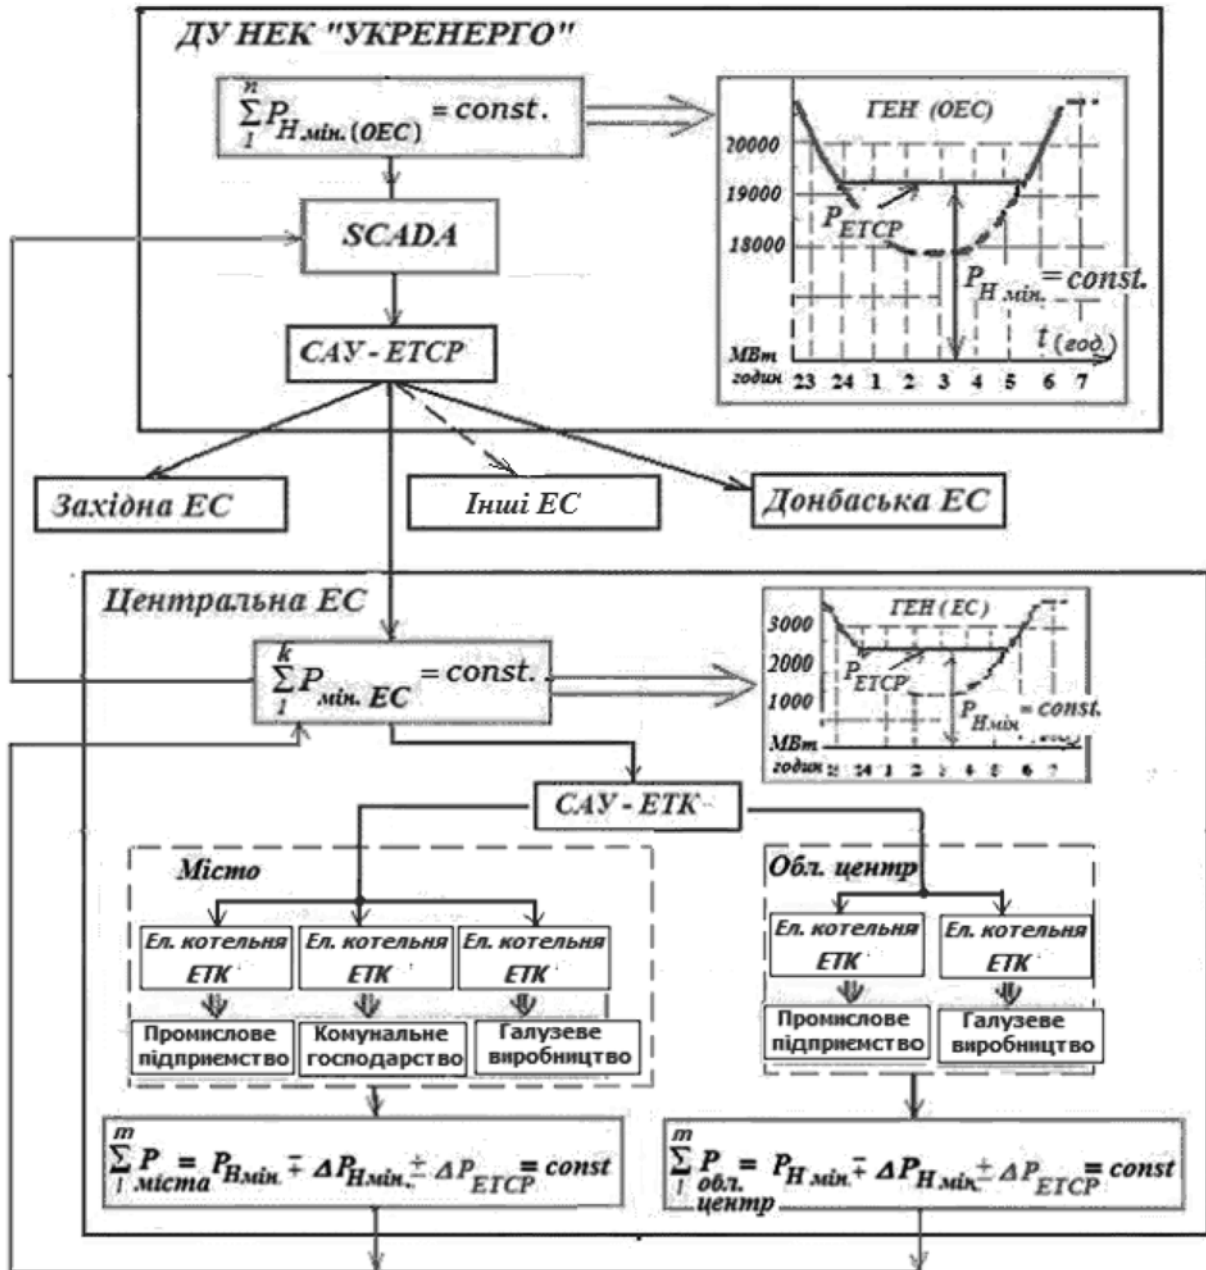 ДУ НЕК "УКРЕНЕРГО"
n
∑ P Н.мін.(ОЕС) = const.
1
SCADA
САУ - ЕТСР
ГЕН (ОЕС)
20000
19000
18000
P ЕТСР
P Н мін. = const.
t (год.)
МВт
годин 23 24 1 2 3 4 5 6 7
Західна ЕС
Інші ЕС
Донбаська ЕС
Центральна ЕС
k
∑ P мін. ЕС = const.
1
ГЕН (ЕС)
3000
2000
1000
P ЕТСР
P Нмін = const.
МВт
годин 24 1 2 3 4 5 6 7
САУ - ЕТК
Місто
Ел. котельня
ЕТК
Ел. котельня
ЕТК
Ел. котельня
ЕТК
Промислове
підприємство
Комунальне
господарство
Галузеве
виробництво
Обл. центр
Ел. котельня
ЕТК
Ел. котельня
ЕТК
Промислове
підприємство
Галузеве
виробництво
m
∑ P міста = P Нмін. ∓ ΔP Нмін. ± ΔP ЕТСР = const
1
m
∑ P обл. центр = P Н мін. ∓ ΔP Н мін. ± ΔP ЕТСР = const
1